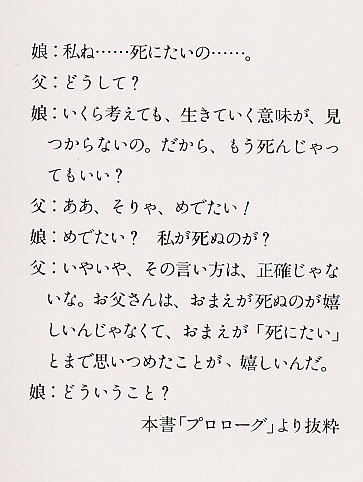 娘：私ね……死にたいの……。
父：どうして？
娘：いくら考えても、生きていく意味が、見
つからないの。だから、もう死んじゃっ
てもいい？
父：ああ、そりゃ、めでたい！
娘：めでたい？　私が死ぬのが？
父：いやいや、その言い方は、正確じゃな
いな。お父さんは、おまえが死ぬのが嬉
しいんじゃなくて、おまえが「死にたい」
とまで思いつめたことが、嬉しいんだ。
娘：どういうこと？
本書「プロローグ」より抜粋